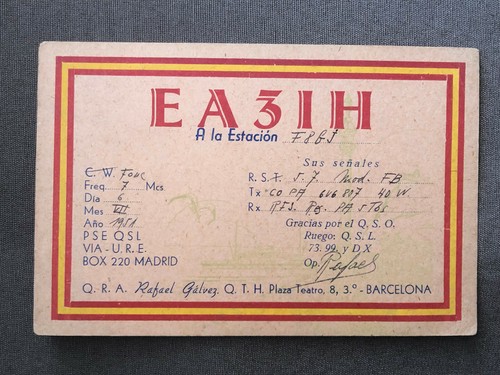 EA3IH
A la Estación F8GJ
Sus señales
C. W. Fone
R. S. T. 5. 7. Mod. FB
Freq. 7 Mcs.
Tx CO PA 6V6 807 40 W
Día 6
Mes VII
Año 1951
Gracias por el Q. S. O.
PSE QSL
Ruego: Q. S. L.
VIA - U. R. E.
73, 99, y DX
BOX 220 MADRID
Op. Rafael
Q. R. A. Rafael Gálvez. Q. T. H. Plaza Teatro, 8, 3.º - BARCELONA